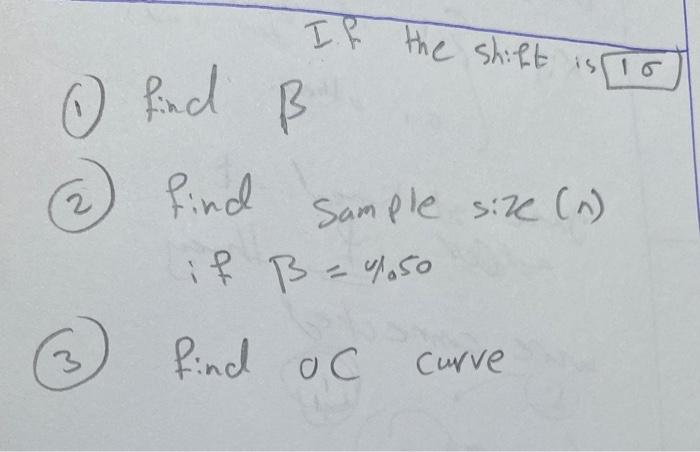 If the shift is 1σ
① find β
② find sample size (n)
if β = %50
③ find OC curve